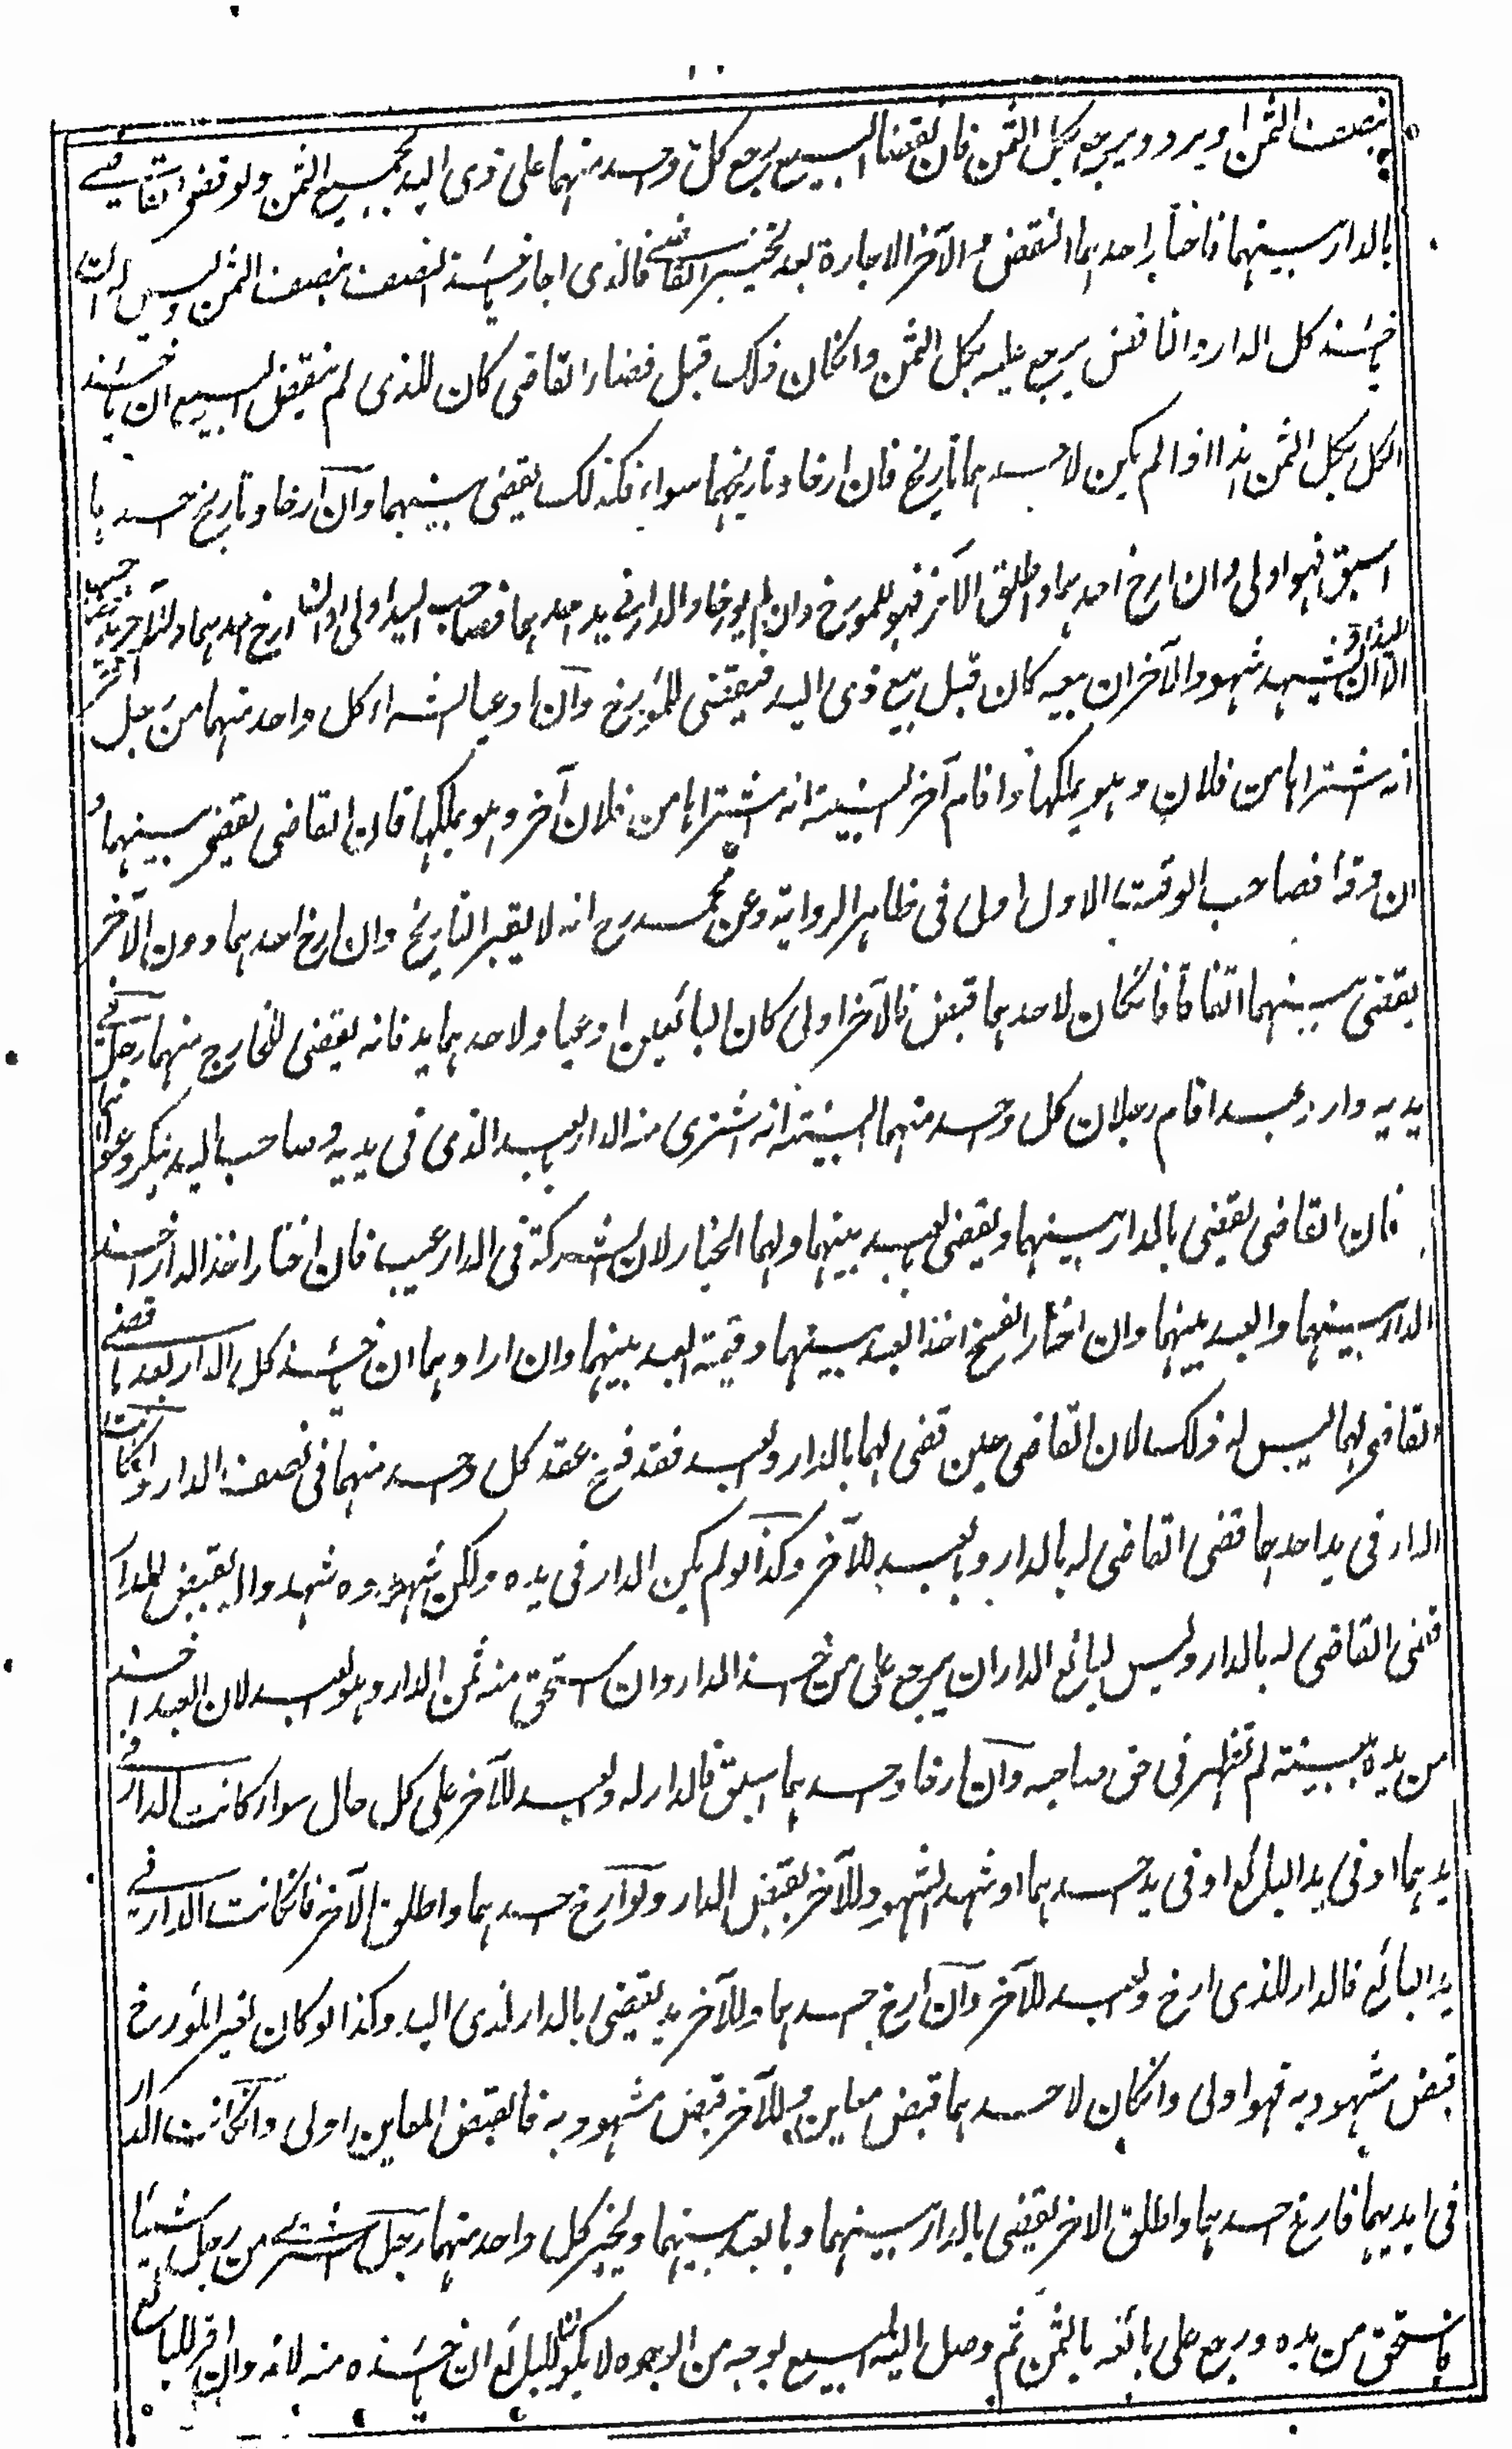 بنصف الثمن او يرد ويرجع بكل الثمن فان نقضا البيع رجع كل واحد منهما على ذى اليد بجميع الثمن ولو قضى القاضى
بالدار بينهما فاختار احدهما النقض والآخر الاجازة بعد تخيير القاضى فالذى اجاز يأخذ النصف بنصف الثمن وليس له ان
يأخذ كل الدار والناقض يرجع عليه بكل الثمن وانكان ذلك قبل قضاء القاضى كان للذى لم ينقض البيع ان يأخذ
الكل بكل الثمن هذا اذا لم يكن لاحدهما تاريخ فان ارخا وتاريخهما سواء فكذلك يقضى بينهما وان ارخا وتاريخ احدهما
اسبق فهو اولى وان ارخ احدهما واطلق الآخر فهو للمورخ وان لم يورخا والدار فى يد احدهما فصاحب اليد اولى وان ارخ احدهما وللآخر يد
الا ان يشهد شهود الآخر ان بيعه كان قبل بيع ذى اليد فيقضى للمورخ وان ادعيا الشراء كل واحد منهما من رجل
انه اشتراها من فلان وهو يملكها واقام آخر البينة انه اشتراها من فلان آخر وهو يملكها فان القاضى يقضى بينهما و
ان وقتا فصاحب الوقت الاول اولى فى ظاهر الرواية وعن محمد رح انه لا يعتبر التاريخ وان ارخ احدهما دون الآخر
يقضى بينهما اتفاقا فانكان لاحدهما قبض فالآخر اولى كان البائعين ادعيا ولاحدهما يد فانه يقضى للخارج منهما رجل فى
يديه دار وعبد اقام رجلان كل واحد منهما البينة انه اشترى منه الدار بالعبد الذى فى يديه وصاحب اليد ينكر دعواهما
فان القاضى يقضى بالدار بينهما ويقضى بالعبد بينهما ولهما الخيار لان الشركة فى الدار عيب فان اختارا اخذ الدار اخذ
الدار بينهما والعبد بينهما وان اختارا الفسخ اخذا العبد بينهما وقيمة العبد بينهما وان اراد احدهما ان يأخذ كل الدار بعد ما قضى
القاضى لهما ليس له ذلك لان القاضى حين قضى لهما بالدار والعبد فقد فسخ عقد كل واحد منهما فى نصف الدار وانكانت
الدار فى يد احدهما قضى القاضى له بالدار وبالعبد للآخر وكذا لو لم يكن الدار فى يده ولكن شهوده شهدوا له بقبض الدار
قضى القاضى له بالدار وليس لبائع الدار ان يرجع على من اخذ الدار وان استحق منه ثمن الدار وهو العبد لان العبد اخذ
من يده ببينة لم تظهر فى حق صاحبه وان ارخا واحدهما اسبق فالدار له والعبد للآخر على كل حال سواء كانت الدار فى
يدهما او فى يد البائع او فى يد احدهما او شهد الشهود للآخر بقبض الدار ولو ارخ احدهما واطلق الآخر فانكانت الدار فى
يد البائع فالدار للذى ارخ والعبد للآخر وان ارخ احدهما وللآخر يد يقضى بالدار لذى اليد وكذا لو كان لغير المورخ
قبض مشهود به فهو اولى وانكان لاحدهما قبض معاين وللآخر قبض مشهود به فالقبض المعاين اولى وانكانت الدار
فى ايديهما فارخ احدهما واطلق الاخر يقضى بالدار بينهما وبالعبد بينهما ويخير كل واحد منهما رجل اشترى من رجل شيئا
فاستحق من يده ورجع على بائعه بالثمن ثم وصل اليه المبيع بوجه من الوجوه لا يكون للبائع ان يأخذه منه لانه وان اقر للبائع